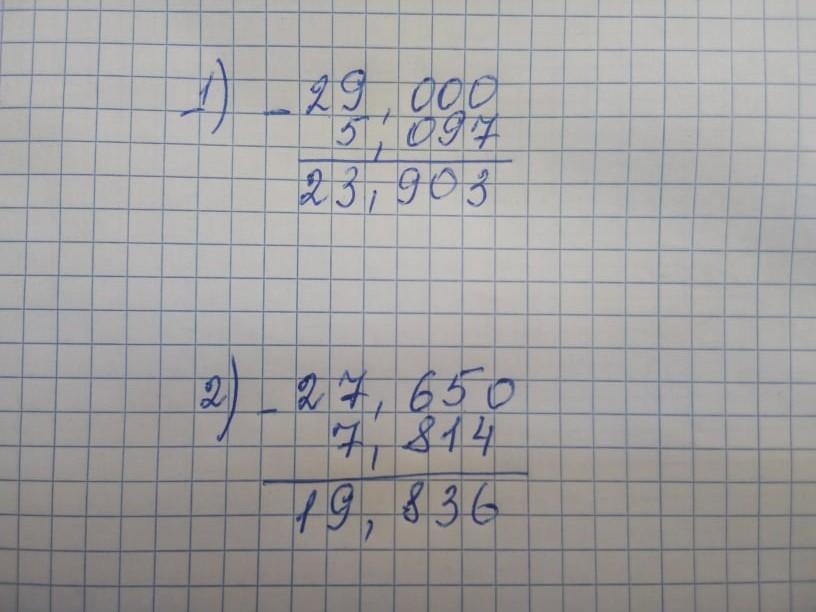 1) - 29,000
5,097
23,903
2) - 27,650
7,814
19,836